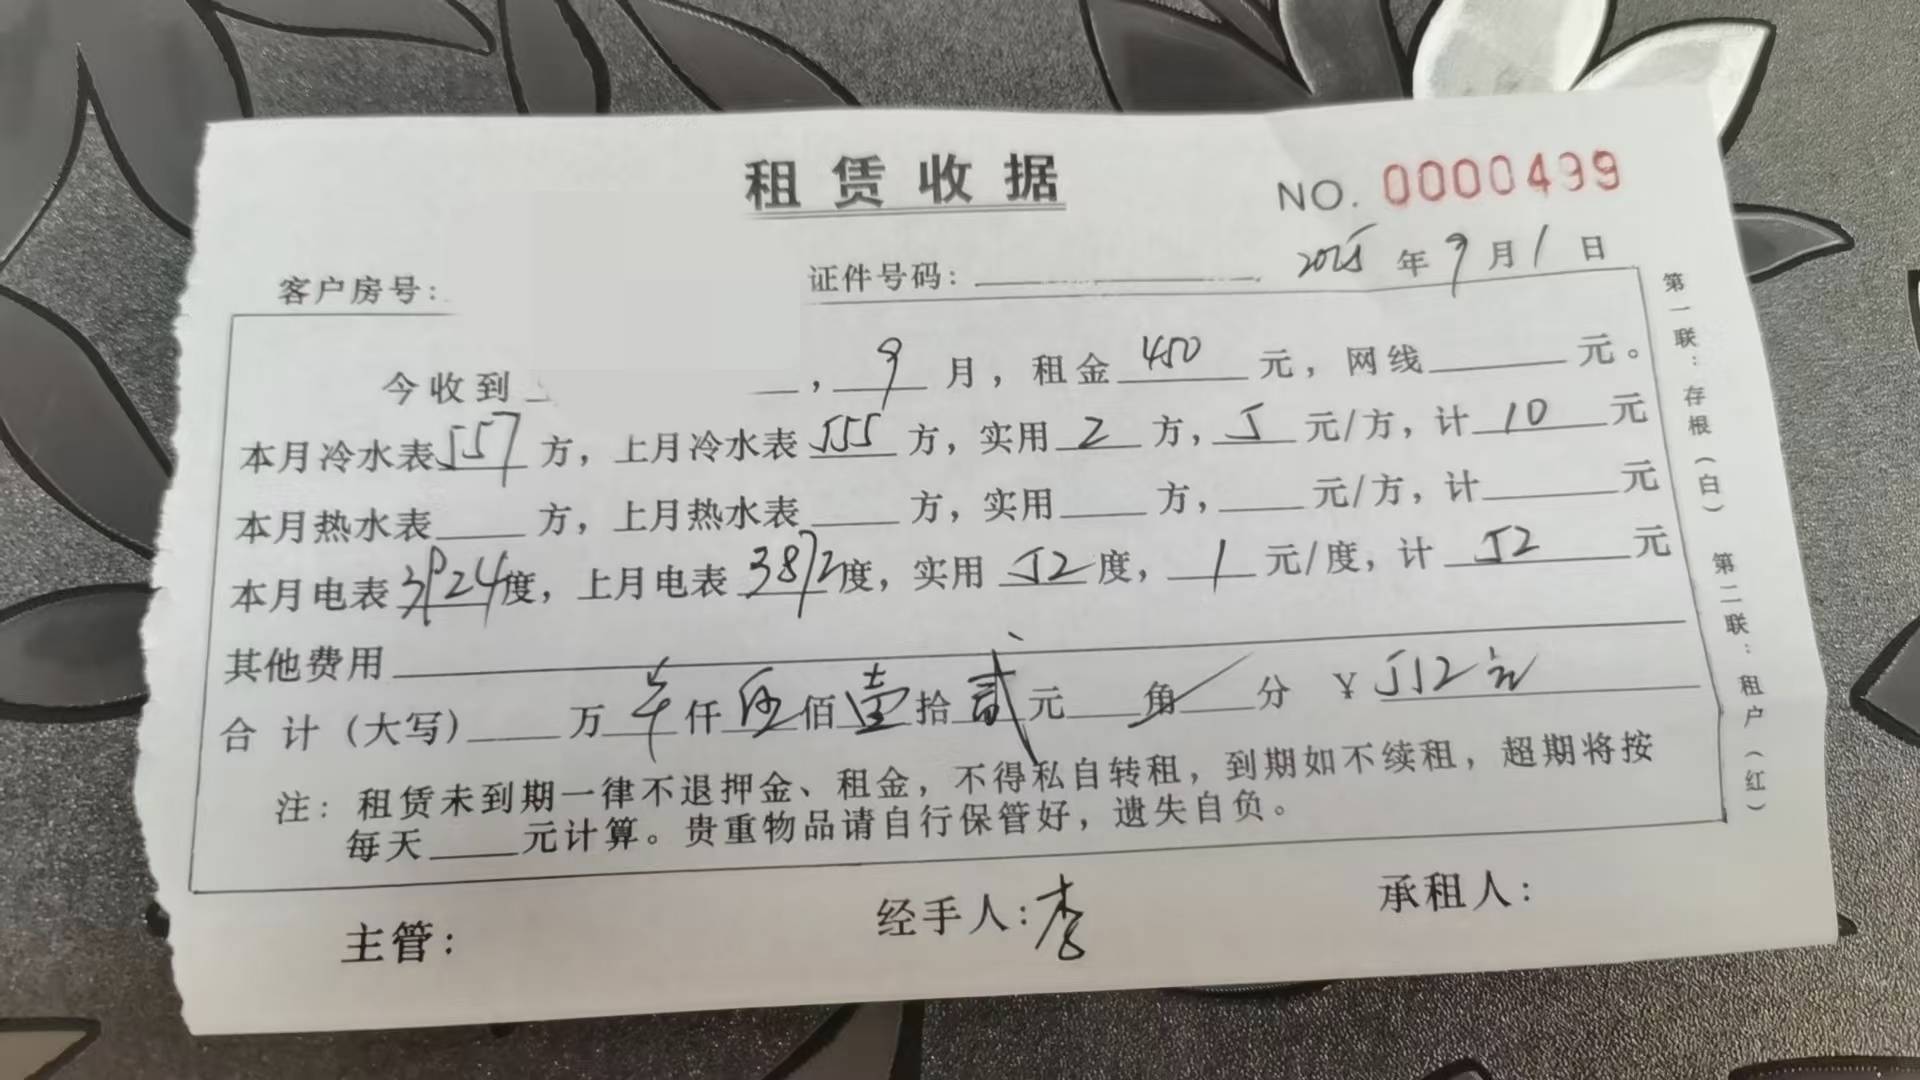 租赁收据
NO. 0000499
客户房号: 证件号码: 2025年9月1日
今收到 , 9 月, 租金 450 元, 网线 元。
本月冷水表 557 方, 上月冷水表 555 方, 实用 2 方, 5 元/方, 计 10 元
本月热水表 方, 上月热水表 方, 实用 方, 元/方, 计 元
本月电表 3924 度, 上月电表 3872 度, 实用 52 度, 1 元/度, 计 52 元
其他费用
合计(大写) 万 仟 伍 佰 壹 拾 贰 元 角 分 ¥ 512元
注: 租赁未到期一律不退押金、租金, 不得私自转租, 到期如不续租, 超期将按
每天 元计算。贵重物品请自行保管好, 遗失自负。
主管: 经手人: 李 承租人:
第一联: 存根(白) 第二联: 租户(红)